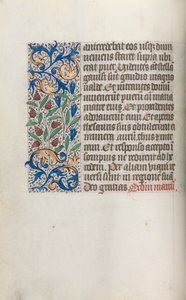 antecedebat eos usq; dum
ueniens staret supra ubi
erat puer. Uidentes aut stellā
gauisi sunt gaudio magno
ualde. Et intrantes domū
inuenerunt puerū cū maria
matre eius. Et procidentes
adorauerunt eum. Et apertis
thesauris suis obtulerunt ei
munera. aurū. thus et mir
ram. Et responso accepto ī
sompnis ne redirent ad he
rodem. Per aliam uiam re
uersi sunt in regionē suā
Deo gratias.